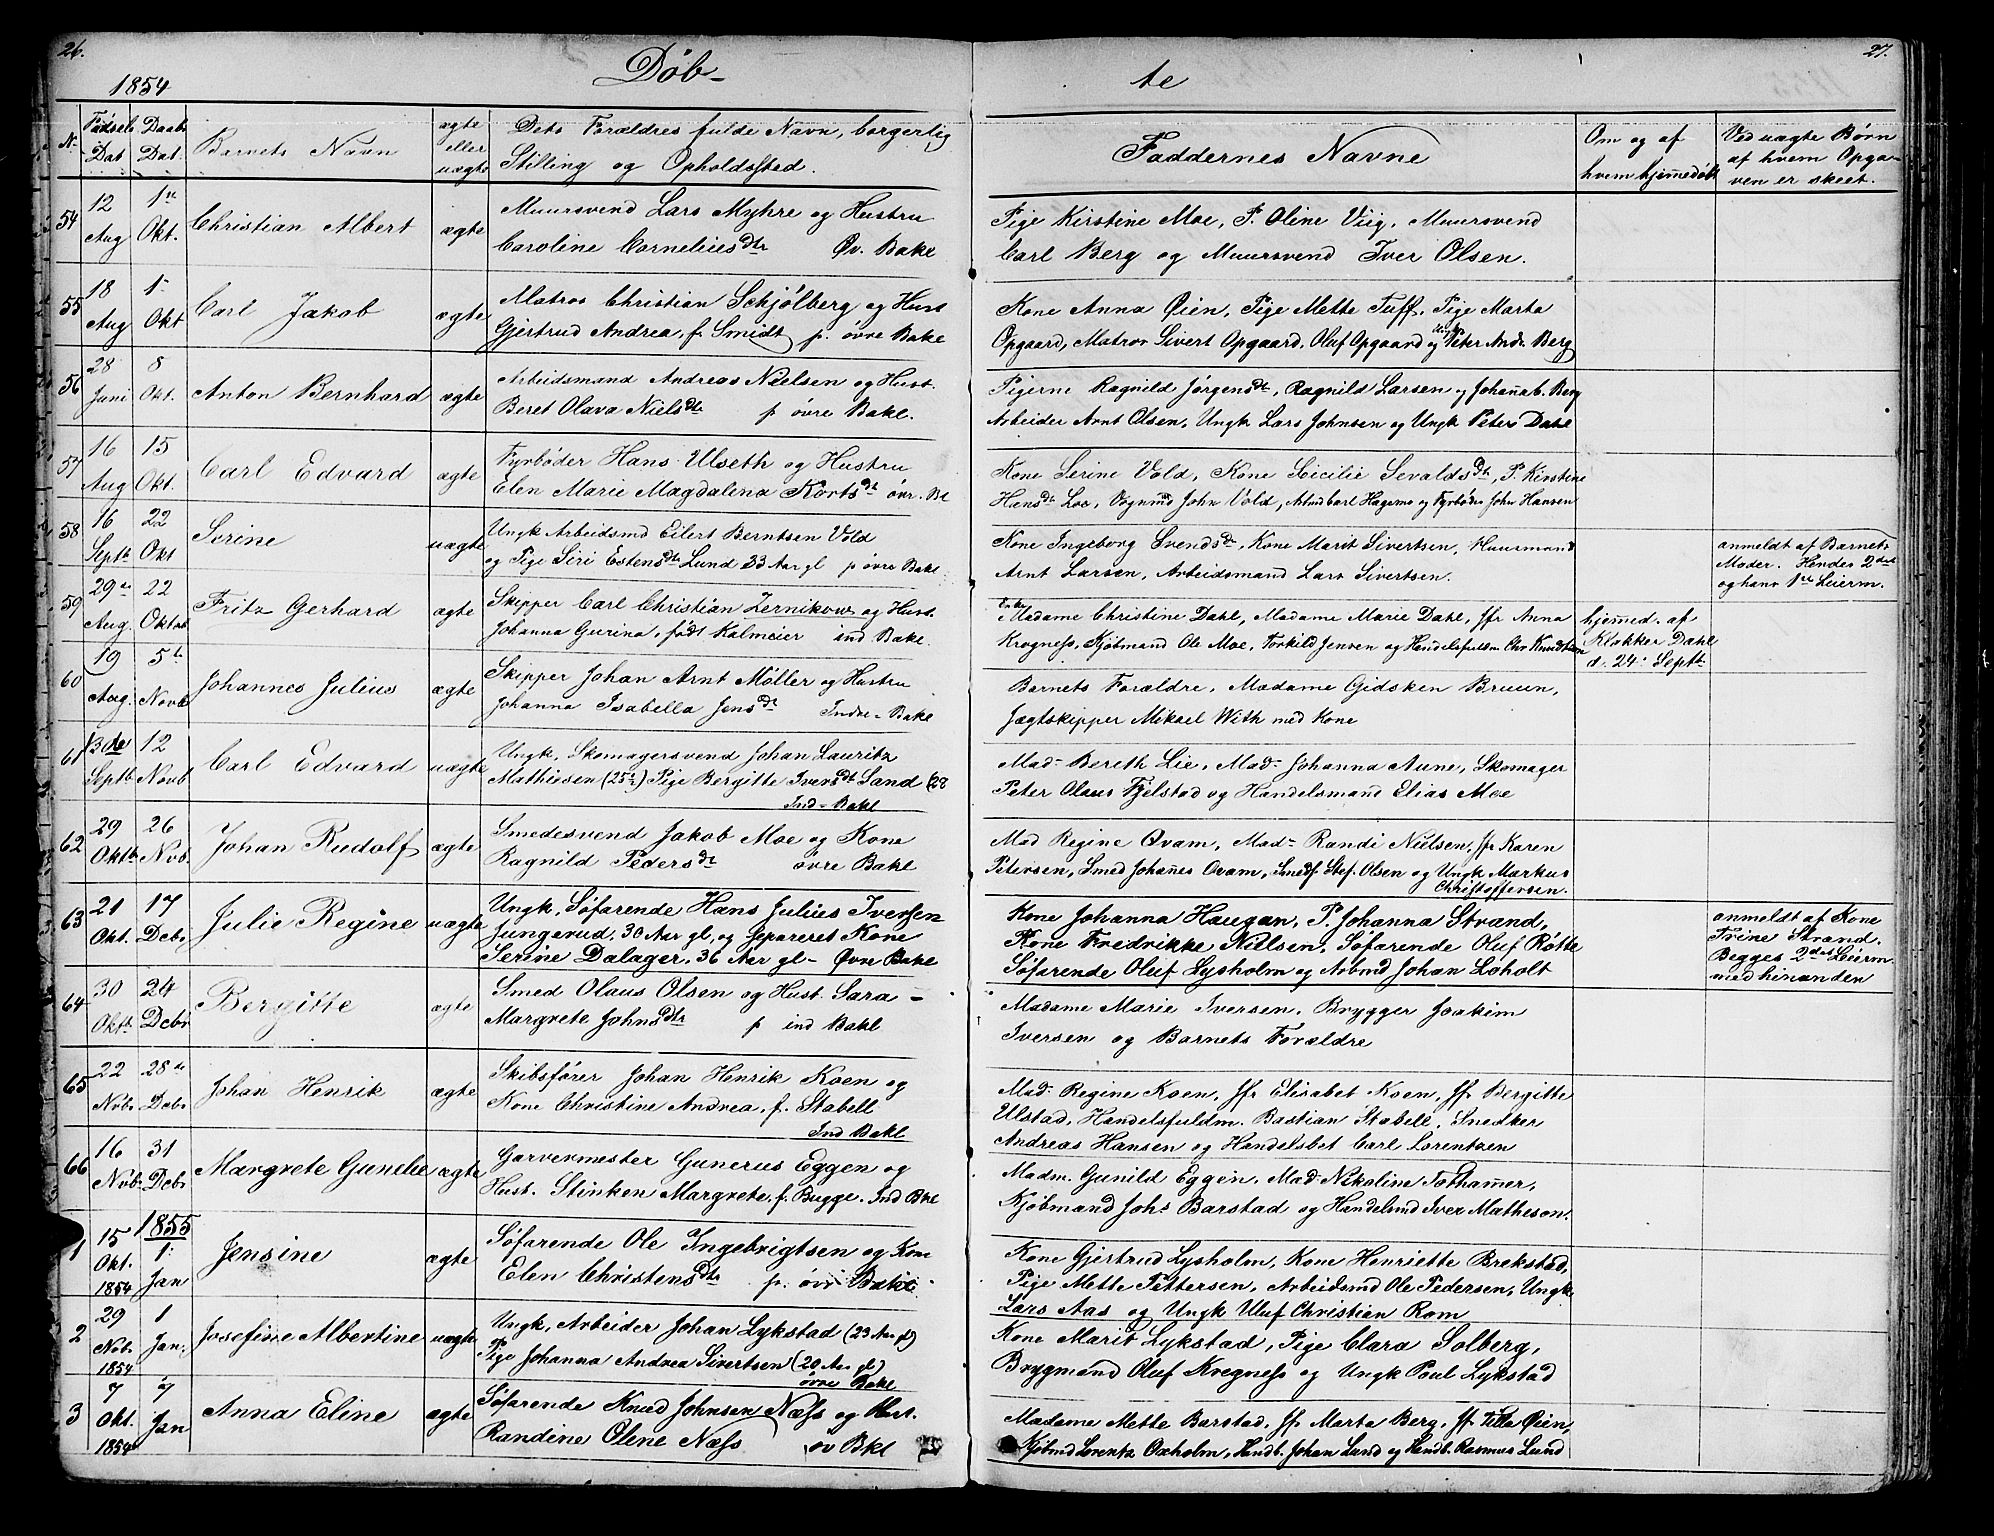 26.
1854
Døb-
N.
Fødsels Dat
Daabs Dat.
Barnets Navn
ægte eller uægte
Dets Forældres fulde Navn, borgerlig
Stilling og Opholdssted.
54
12 Aug
1ste Okt.
Christian Albert
ægte
Muursvend Lars Myhre og Hustru
Caroline Corneliusdtr Øv. Bake
55
18 Aug
1ste Okt
Carl Jakob
ægte
Matros Christian Schjølberg og Hust
Gjertrud Andrea, f. Smidt p. øvre Bake
56
28 Juni
8 Okt.
Anton Bernhard
ægte
Arbeidsmand Andreas Nielsen og Hust.
Beret Olava Nielsdtr p øvre Bakl.
57
16 Aug
15 Okt.
Carl Edvard
ægte
Fyrbøder Hans Ulseth og Hustru
Elen Marie Magdalena Kortsdt øvr. Bl
58
16 Septb
22 Okt
Serine
uægte
Ungk Arbeidsmd Eilert Berntsen Vold
og Pige Siri Estensdt Lund 33 Aar gl p øvre Bakl
59
29de Aug.
22 Oktob
Fritz Gerhard
ægte
Skipper Carl Christian Zernikow og Hust.
Johanna Gurina, født Kalmeier ind Bakl.
60
19 Aug.
5t Novb
Johannes Julius
ægte
Skipper Johan Arnt Møller og Hustru
Johanna Isabella Jensdt Indre-Bakl
61
3de Septb
12 Novb
Carl Edvard
uægte
Ungk. Skomagersvend Johan Lauritz
Mathiesen (25½) Pige Bergitte Iversdt Sand (28
Ind-Bakl
62
29 Oktb
26 Nvb.
Johan Rudolf
ægte
Smedesvend Jakob Moe og Kone
Ragnild Pedersdt øvre Bakl
63
21 Okt.
17 Debr
Julie Regine
uægte
Ungk, Søfarende Hans Julius Iversen
Jungerud, 30 Aar gl, og separeret Kone
Serine Dalager, 36 Aar gl- Øvre Bakl
64
30 Oktb
24 Debr
Bergitte
ægte
Smed Olaus Olsen og Hust. Sara-
Margrete Johnsdtr p ind Bakl
65
22 Nvbr
28de Debr
Johan Henrik
ægte
Skibsfører Johan Henrik Koen og
Kone Christine Andrea, f. Stabell
Ind Bakl
66
16 Nvb.
31 Debr
Margrete Gunelie
ægte
Garvermester Gunerus Eggen og
Hust. Stinken Margrete, f. Bugge. Ind Bkl
1855
1
15 Okt. 1854
1. Jan
Jensine
ægte
Søfarende Ole Ingebrigtsen og Kone
Elen Christensdtr p. øvr Bakl
2
29 Nvb. 1854
1 Jan.
Josefine Albertine
uægte
Ungk, Arbeider Johan Lykstad (23 Aar gl)
Pige Johanna Andrea Sivertsen (20 Aar gl)
øvre Bakl
3
7 Okt. 1854
7 Jan
Anna Eline
ægte
Søfarende Knud Johnsen Næss og Hust.
Randine Olene Næss ov Bkl
27.
te
Faddernes Navne
Om og af
hvem hjemmedøbt
Ved uægte Børn
af hvem Opga-
ven er skeet.
Pige Kirstine Moe, P. Oline Viig, Muursvend
Carl Berg og Muursvend Iver Olsen.
Kone Anna Øien, Pige Mette Tuff, Pige Marta
Opgaard, Matros Sivert Opgaard, Oluf Opgaard og Ungk Peter Andr. Berg
Pigerne Ragnild Jørgensdt, Ragnild Larsen og Johanna b. Berg
Arbeider Arnt Olsen, Ungk Lars Johnsen og Ungk Peter Dahl
Kone Serine Vold, Kone Scicilie Sevaldsdt, P. Kirstine
Hansdt Loe, Vognmd John Vold, Arbmd Carl Hagemo og Fyrbøder John Hansen
Kone Ingeborg Svendsdt, Kone Marit Sivertsen, Huusmand
Arnt Larsen, Arbeidsmand Lars Sivertsen.
anmeldt af Barnets
Moder. Hendes 2det
og hans 1ste Leierm.
Enke Madame Christine Dahl, Madame Marie Dahl, Jfr Anna
Krogness, Kjøbmand Ole Moe, Torkild Jensen og Handelsfuldm. Chr Knudtzon
hjemed. af
Klokker Dahl
d. 24. Septbr
Barnets Forældre, Madame Gidsken Bruun,
Jægtskipper Mikael With med Kone
Mad- Bereth Lie, Mad- Johanna Aune, Skomager
Peter Olaus Fjelstad og Handelsmand Elias Moe
Mad Regine Qvam, Mad- Randi Nielsen, Jfr Karen
Petersen, Smed Johannes Qvam, Smedf Stef. Olsen og Ungk Markus
Christoffersen.
Kone Johanna Haugan, P. Johanna Strand,
Kone Fredrikke Nielsen, Søfarende Oluf Røtte
Søfarende Oluf Lysholm og Arbmd Johan Loholt
anmeldt af Kone
Trine Strand.
Begges 2det Leierm.
med hinanden
Madame Marie Iversen, Brygger Joakim
Iversen og Barnets Forældre
Mad- Regine Koen, Jfr Elisabet Koen, Jf Bergitte
Ulstad, Handelsfuldm. Bastian Stabell, Snedker
Andreas Hansen og Handelsbet Carl Lorentzen
Madm. Gunild Eggen, Mad- Nikoline Tothamer,
Kjøbmand Johs Barstad og Handelsmd Iver Matheson.
Kone Gjertrud Lysholm, Kone Henriette Brekstad,
Pige Mette Pettersen, Arbeidsmd Ole Pedersen, Ungk
Lars Aas og Ungk Uluf Christian Rom
Kone Marit Lykstad, Pige Clara Solberg,
Brygmand Oluf Kregness og Ungk Poul Lykstad
Madame Mette Barstad, Jfr Marta Berg, Jfr Tilla Øien,
Kjøbmd Lorentz Oxholm, Handb. Johan Lund og Handb. Rasmus Lund